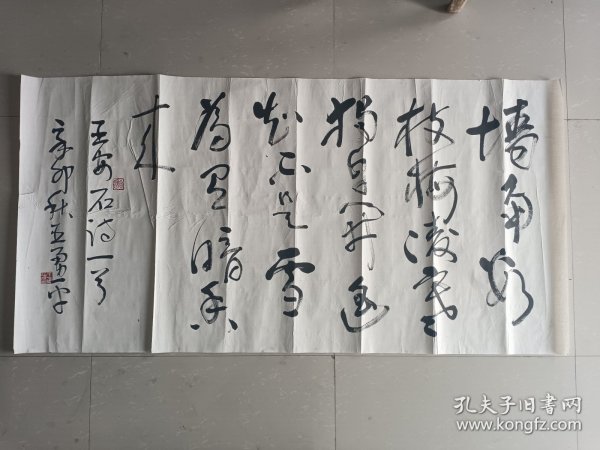 墙角数
枝梅凌寒
独自开遥
知不是雪
为有暗香
来
王安石诗一首
辛卯秋王勇平
孔夫子旧书网
www.kongfz.com